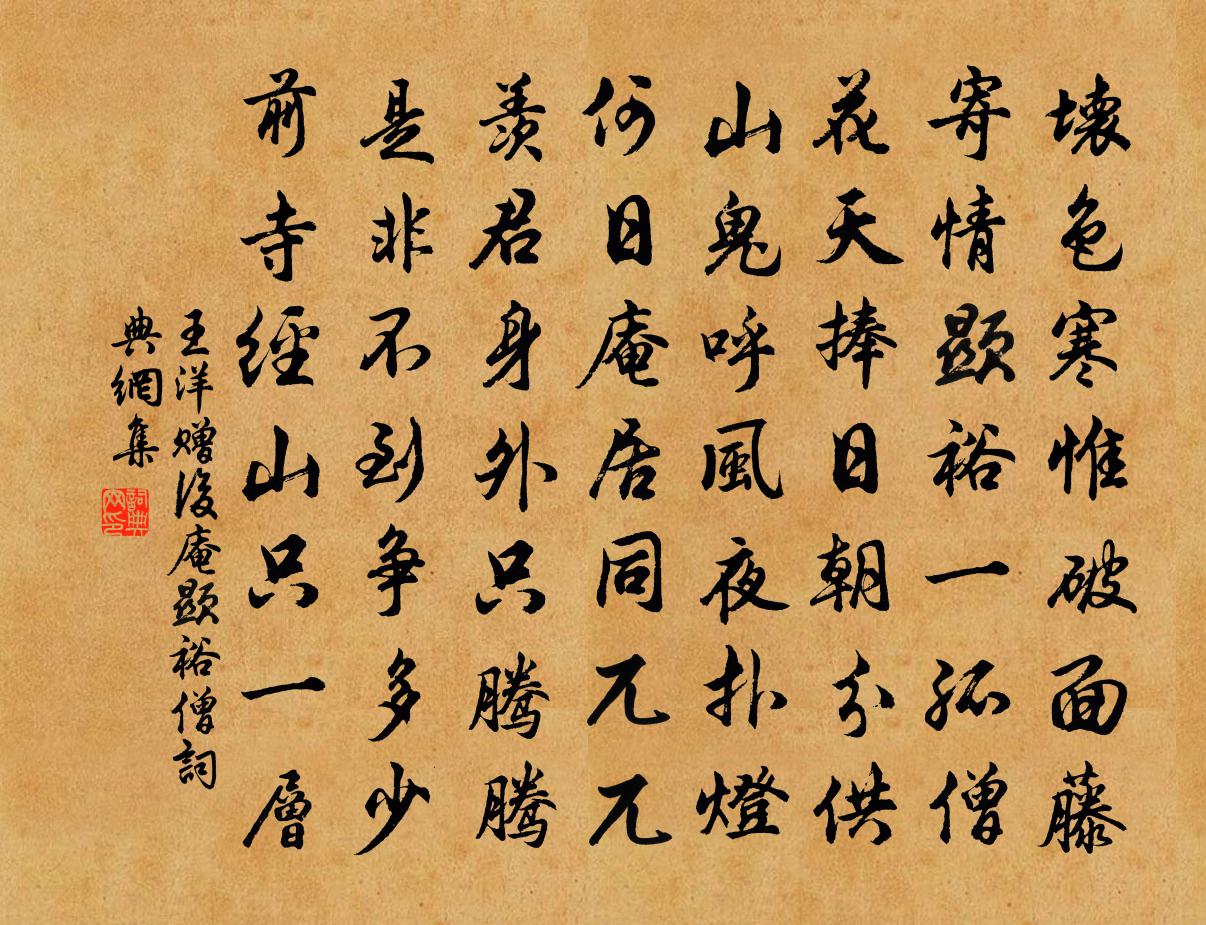 壞色寒惟破面藤
寄情顯裕一孤僧
花天捧日朝分供
山鬼呼風夜扑燈
何日庵居同兀兀
羨君身外只騰騰
是非不到争多少
前寺經山只一層
王洋赠後庵顯裕僧詞
典網集
詞典
网印